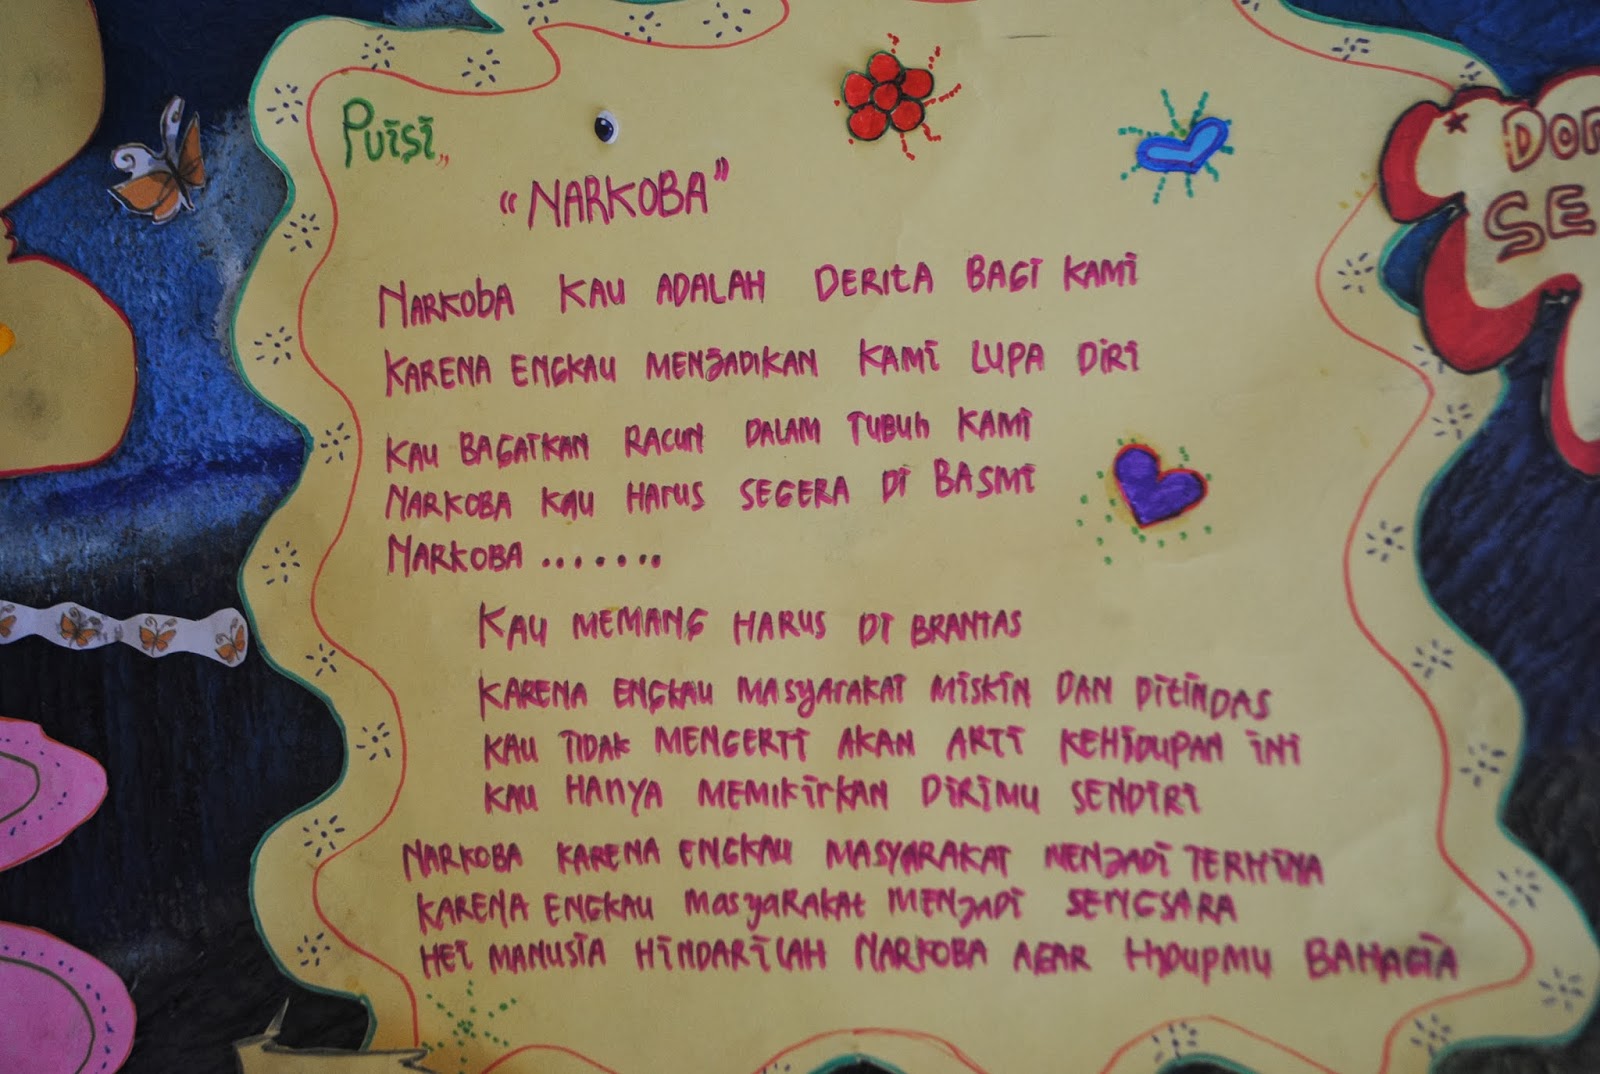 Puisi,,
"NARKOBA"
NARKOBA KAU ADALAH DERITA BAGI KAMI
KARENA ENGKAU MENJADIKAN KAMI LUPA DIRI
KAU BAGAIKAN RACUN DALAM TUBUH KAMI
NARKOBA KAU HARUS SEGERA DI BASMI
NARKOBA .......
KAU MEMANG HARUS DI BRANTAS
KARENA ENGKAU MASYARAKAT MISKIN DAN DITINDAS
KAU TIDAK MENGERTI AKAN ARTI KEHIDUPAN INI
KAU HANYA MEMIKIRKAN DIRIMU SENDIRI
NARKOBA KARENA ENGKAU MASYARAKAT MENJADI TERHINA
KARENA ENGKAU MASYARAKAT MENJADI SENGSARA
HEI MANUSIA HINDARILAH NARKOBA AGAR HIDUPMU BAHAGIA
DON
SE